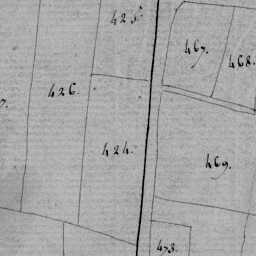 425.
467.
468.
426.
424.
469.
473.